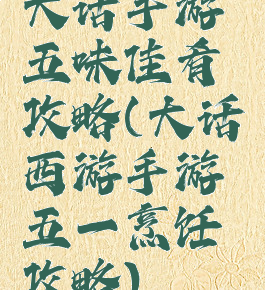 大话手游
五味佳肴
攻略(大话
西游手游
五一烹饪
攻略)